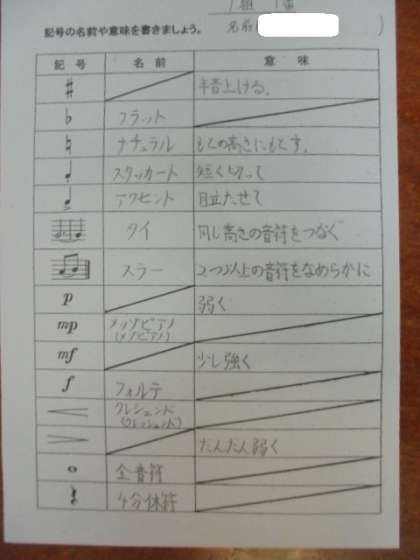 1組 1番
名前( )
記号の名前や意味を書きましょう。
記号 名前 意味
♯ 半音上げる。
♭ フラット
♮ ナチュラル もとの高さにもどす。
スタッカート 短く切って
アクセント 目立たせて
タイ 同じ高さの音符をつなぐ
スラー 2つ以上の音符をなめらかに
p 弱く
mp メッゾピアノ
(メゾピアノ)
mf 少し強く
f フォルテ
クレシェンド
(クレッシェンド)
だんだん弱く
全音符
4分休符